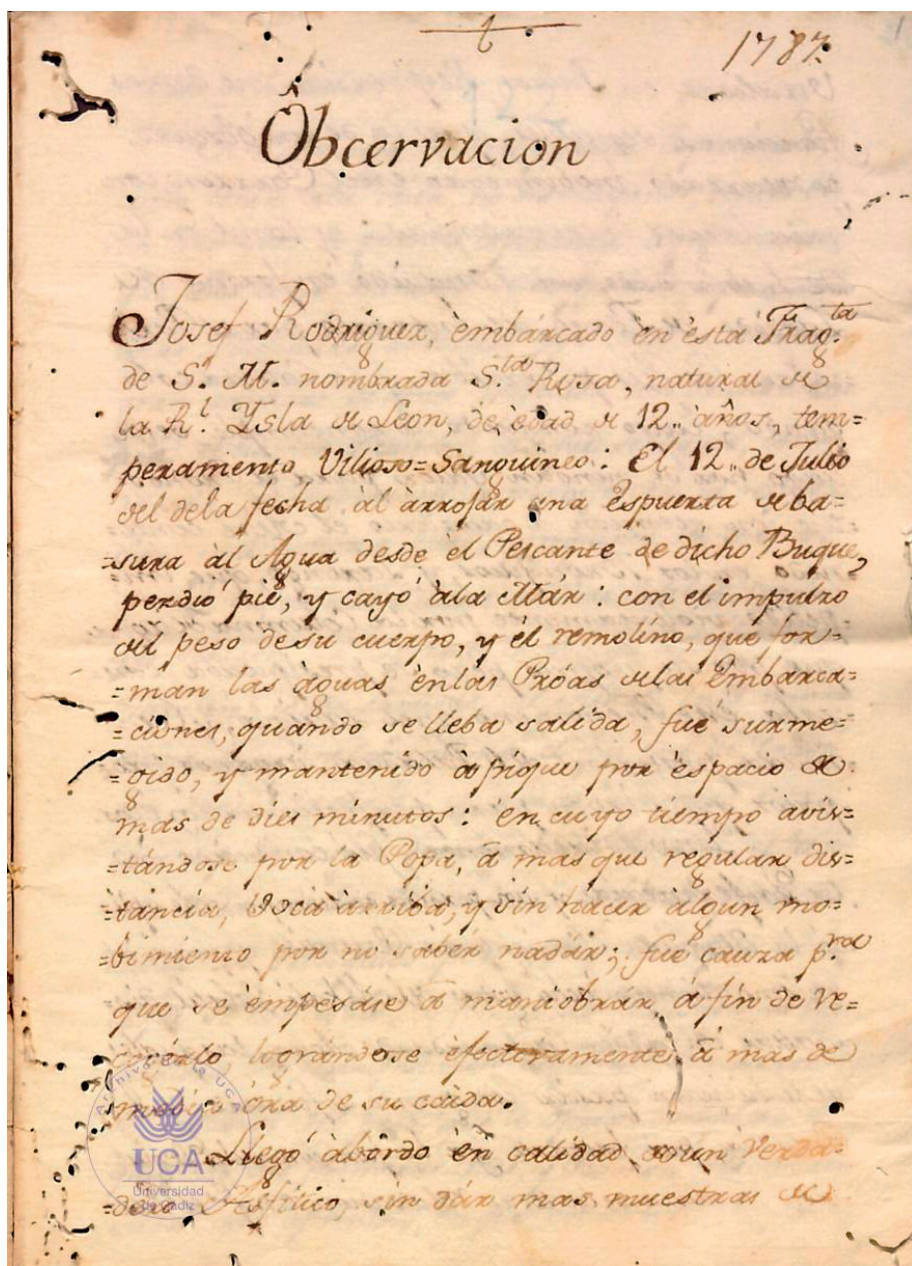 1787.
Obcervacion
Josef Rodriguez, embarcado en esta Frag.ta
de S. M. nombrada S.ta Rosa, natural de
la R.l Ysla de Leon, de edad de 12,, años, tem=
peramento Vilioso=Sanguineo: El 12,, de Julio
del dela fecha al arrojar una Espuerta de ba=
=sura al Agua desde el Pescante de dicho Buque,
perdió pie, y cayó ala Mar: con el impulzo
del peso de su cuerpo, y el remolino, que for=
=man las aguas enlas Próas delas Embarca=
=ciones, quando se lleba salida, fué surme=
=gido, y mantenido á pique por espacio de
mas de dies minutos: en cuyo tiempo avis=
=tándose por la Popa, á mas que regular dis=
=tancia, boca arriba, y sin hacer algun mo=
=bimiento por no saber nadár; fué cauza p.ra
que se empesáse á maniobrár á fin de re=
=cogérlo, lográndose efectivamente á mas de
media óra de su caida.
Llegó abordo en calidad de un verda=
=dero Asfitico, sin dár mas muestras de
Archivo de la UCA
UCA
Universidad
de Cádiz